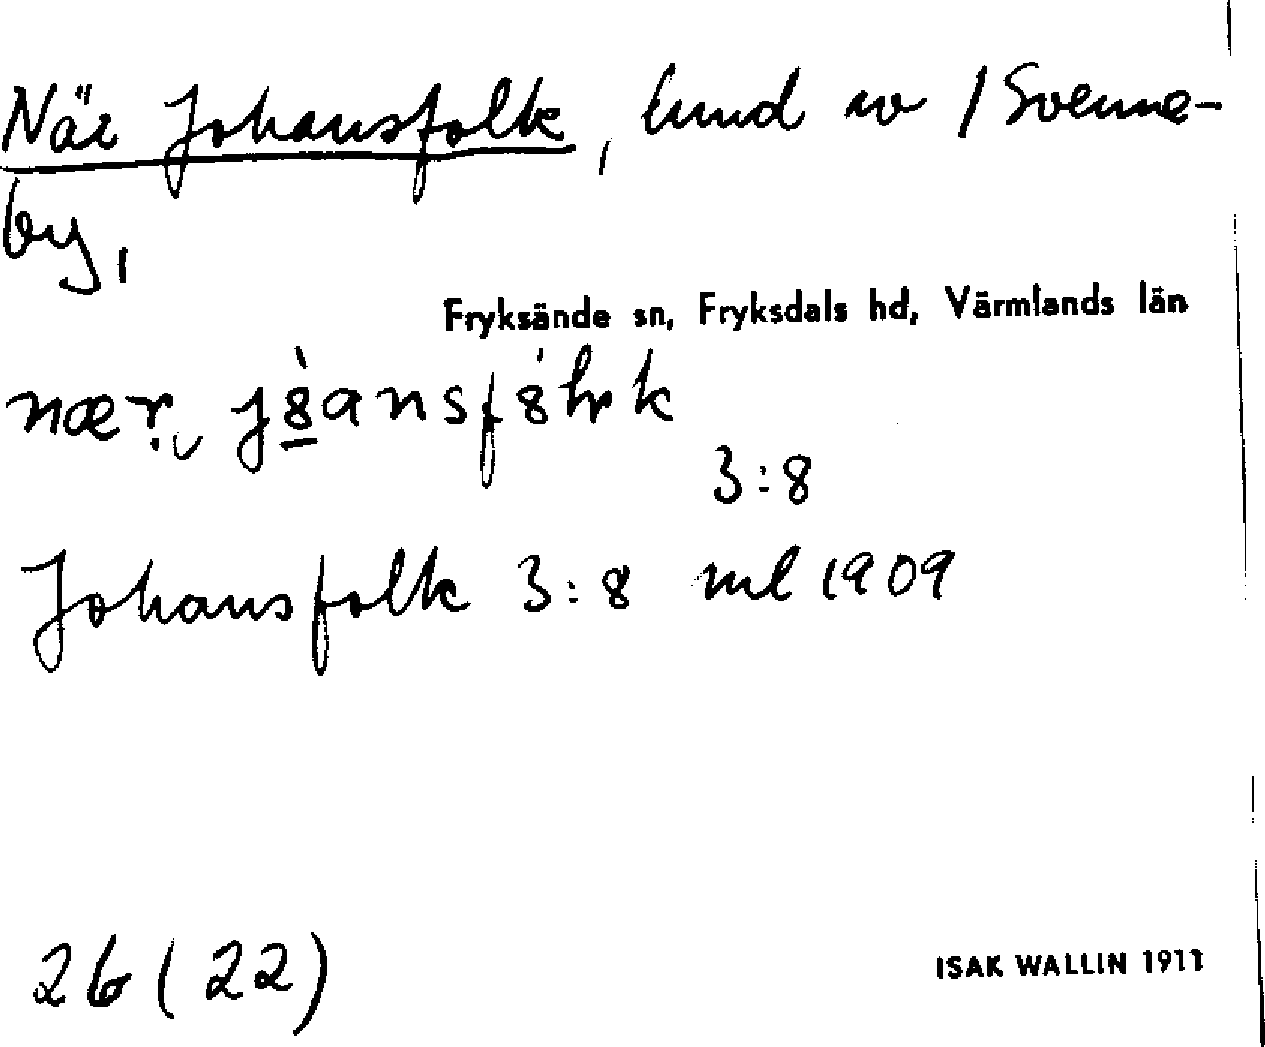 När Johansfolk, lund nv / Svenne-
by,
Fryksände sn, Fryksdals hd, Värmlands län
nær
3:8
Johansfolk 3:8 ml 1909
26 (22)
ISAK WALLIN 1911